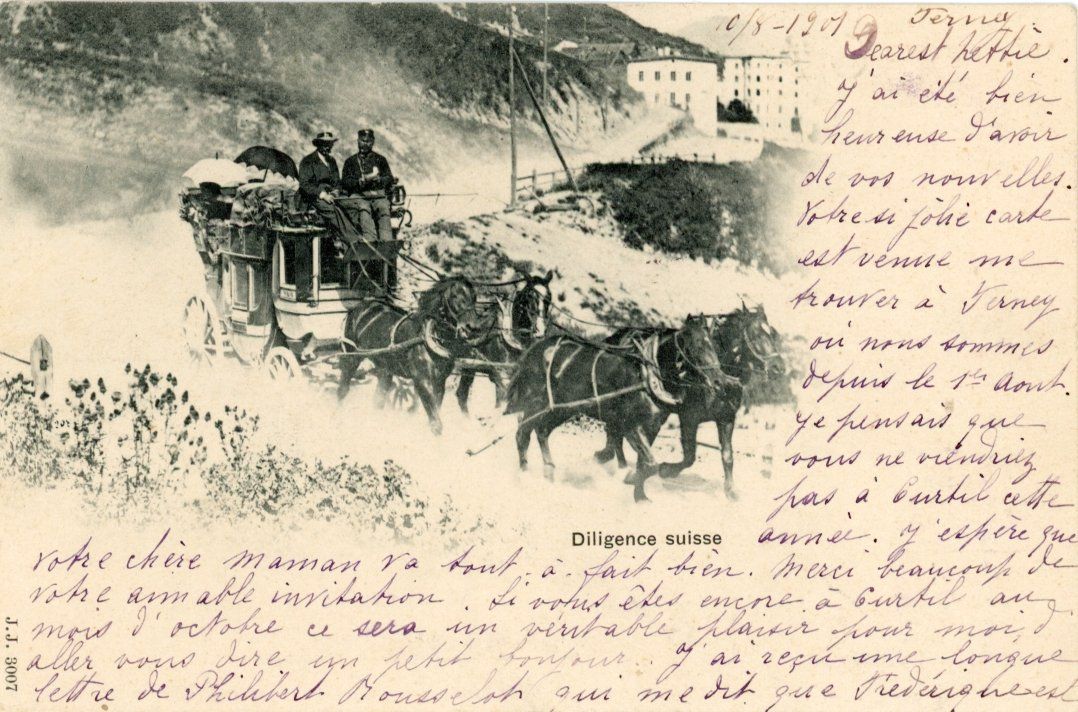 10/8-1901 Ferney.
Dearest Hettie.
J'ai été bien
heureuse d'avoir
de vos nouvelles.
Votre si jolie carte
est venue me
trouver à Ferney
où nous sommes
depuis le 1er Aout.
Je pensais que
vous ne viendriez
pas à Curtil cette
année. J'espère que
votre chère maman va tout-à-fait bien. Merci beaucoup de
votre aimable invitation. Si vous êtes encore à Curtil au
mois d'octobre ce sera un véritable plaisir pour moi d'
aller vous dire un petit bonjour. J'ai reçu une longue
lettre de Philibert Rousselot qui me dit que Frédérique est
Diligence suisse
J.J. 3007